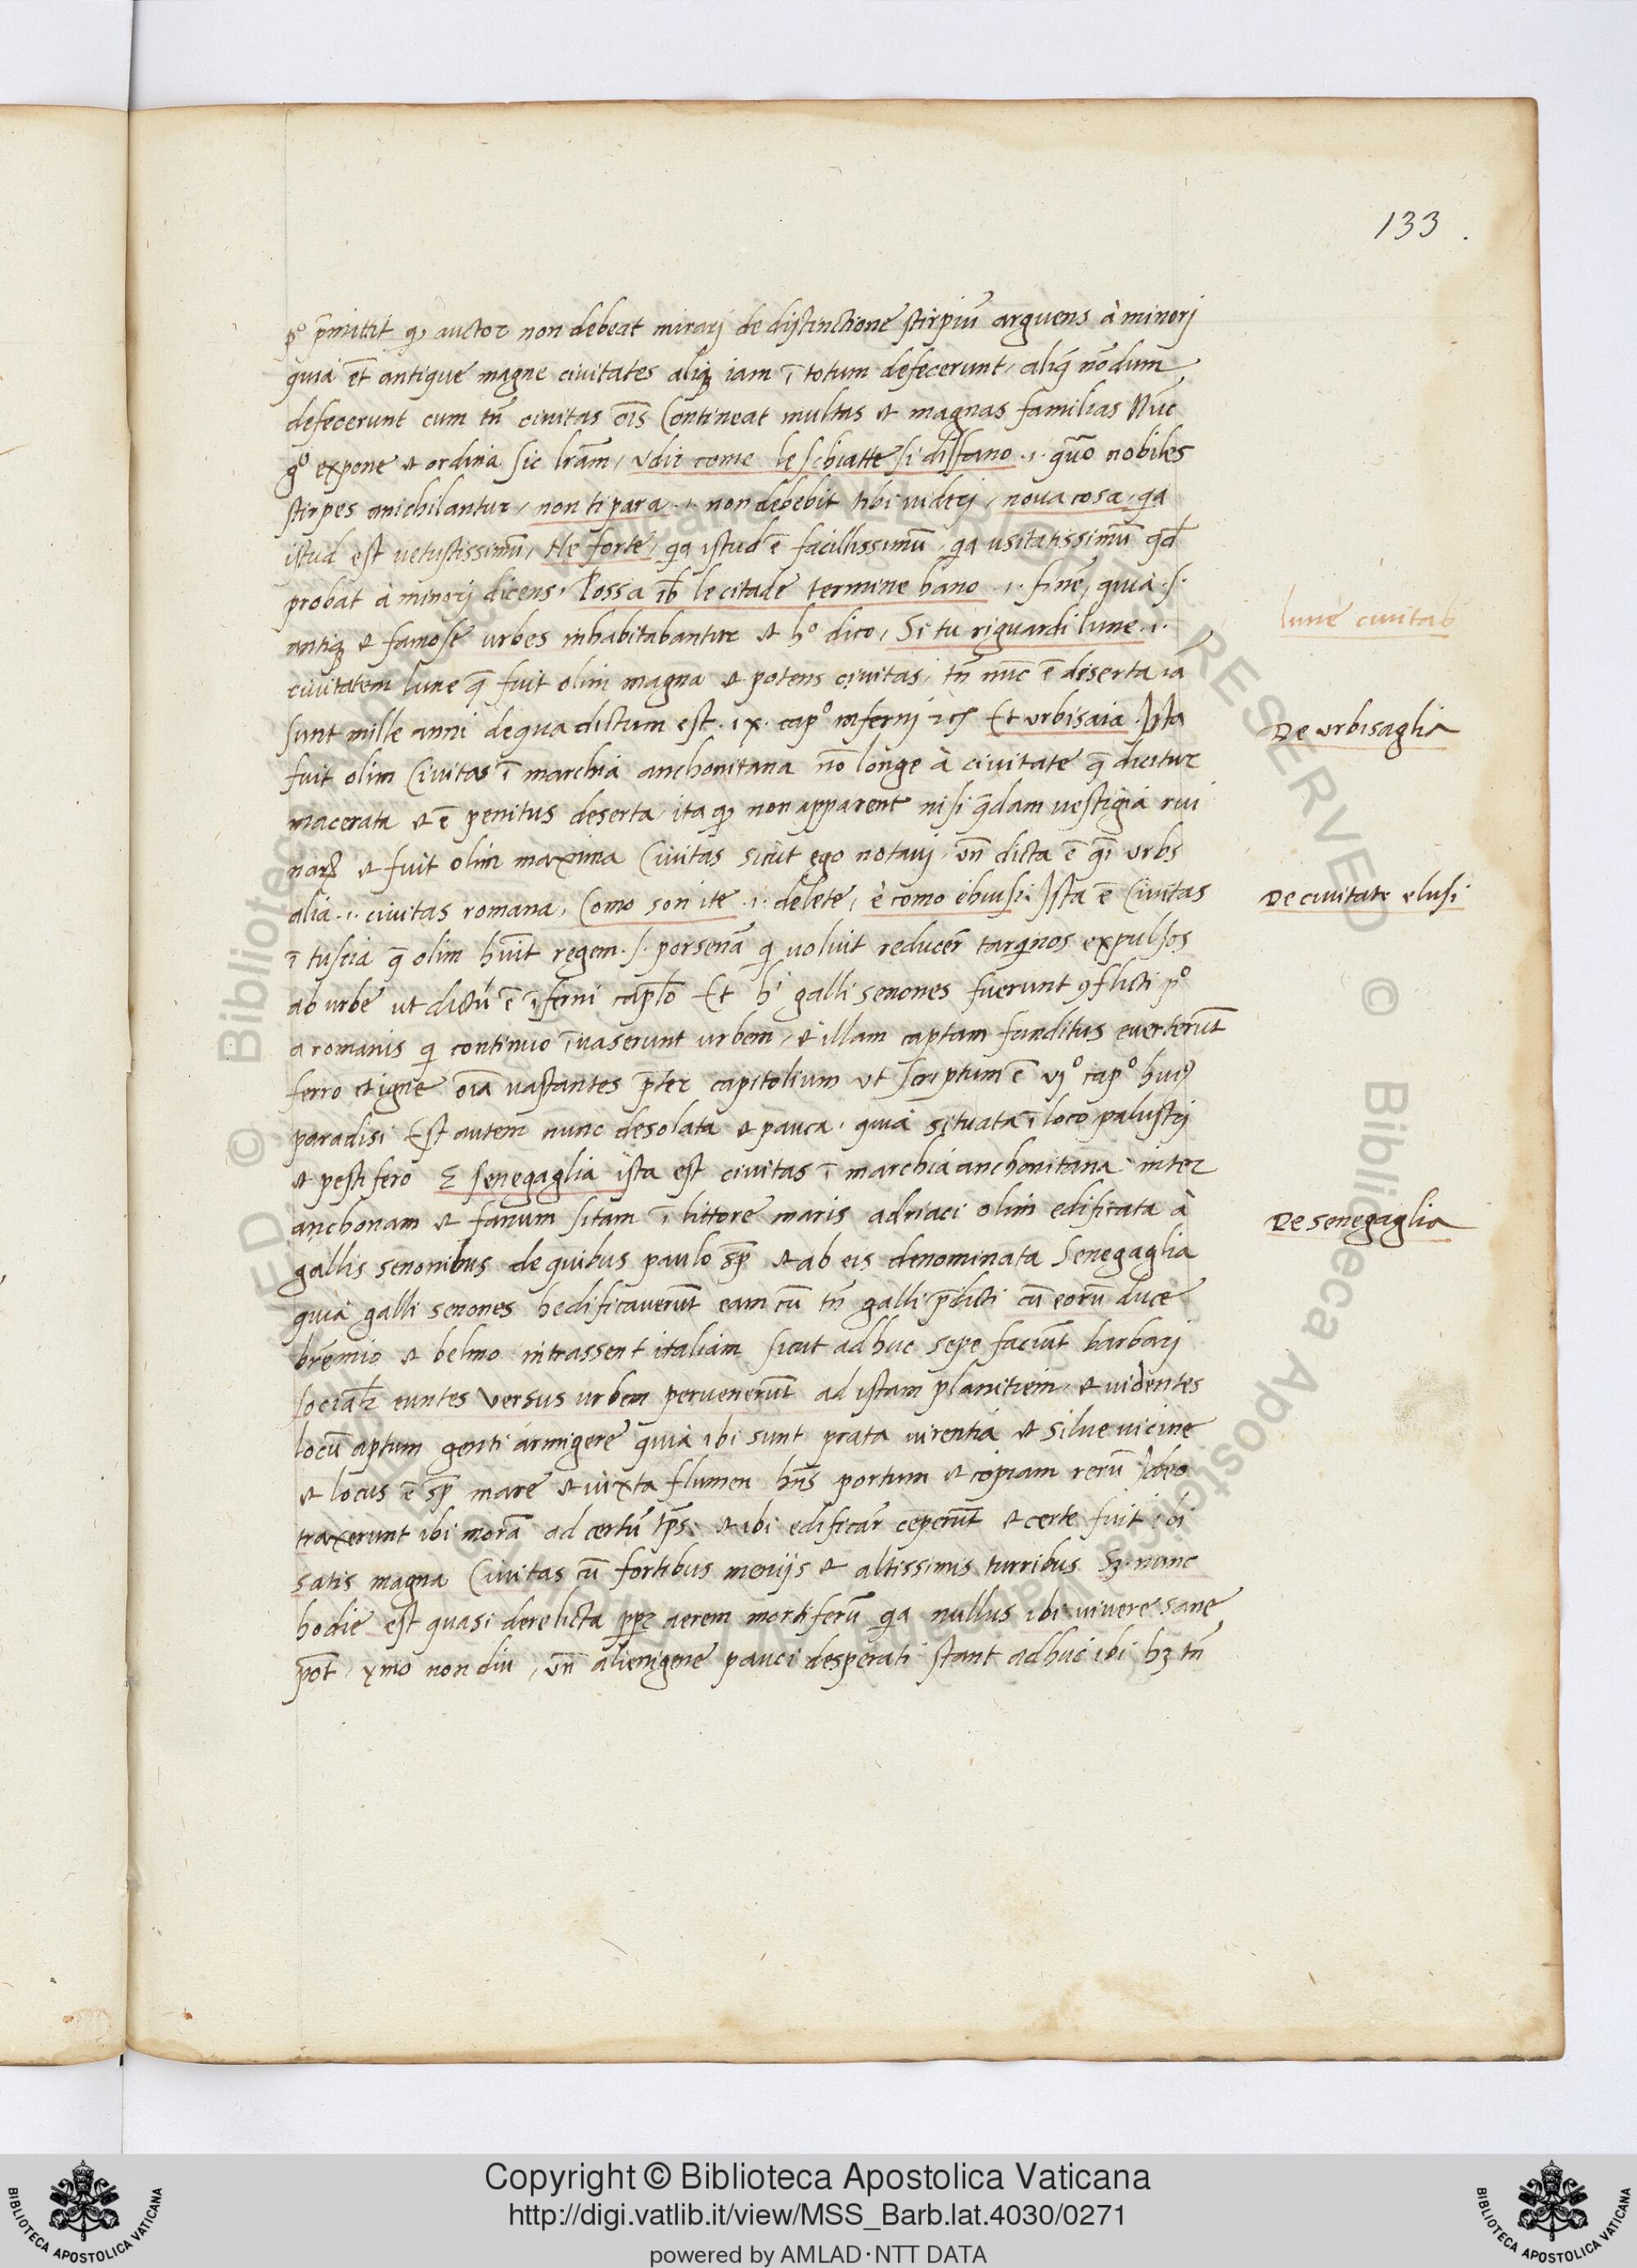 133.
p° p̄mittit qȝ auctor non debeat mirarj de distinctione stirpiū arguens à minorj
quia et̄ antique magne ciuitates aliq̨ iam ī totum defecerunt, aliq̄ nōdum
defecerunt cum tn̄ ciuitas oīs Contineat multas et magnas familias Nūc
g° expone et ordina sic lrām, vdir come le schiatte si disfano .i. quō nobiles
stirpes anichilantur, non ti para .i. non debebit tibi viderj, noua cosa, qa
istud est uetustissimū, Ne forte, qa istud ē facillissimū, qa usitatissimū qd̄
probat à minorj dicens, Possa le citade termine hano .i. finē, quia .s.
antiq̨ et famose urbes inhabitabantur et h° dico, Si tu riguardi lune .i.
ciuitatem lune q̄ fuit olim magna et potens ciuitas, tn̄ nūc ē deserta ia
sunt mille anni de qua dictum est .ix. cap° infernj Et vrbisaia Ista
fuit olim Ciuitas ī marchia anchonitana nō longe à ciuitate q̄ dicitur
macerata et ē penitus deserta, ita qȝ non apparent nisi q̄dam uestigia rui
narꝝ et fuit olim maxima Ciuitas sicut ego notauj, vn̄ dicta ē q̄i vrbs
alia .i. ciuitas romana, Como son ite .i. delete, è como ebiusi: Ista ē Ciuitas
ī tuscia q̄ olim hūit regem .s. porsenā qi voluit reducer̄ tarqinos expulsos
ab urbe ut dictū ē īferni caplō Et hi galli senones fuerunt ꝯflicti p°
a romanis qi continuo īuaserunt urbem, et illam captam funditus euerterūt
ferro et igne oīa uastantes p̄ter capitolium vt scriptum ē vj° cap° huiꝯ
paradisi Est autem nunc desolata et pauca, quia situata ī loco palustrj
et pestifero E senegaglia ista est ciuitas ī marchia anchonitana inter
anchonam et fanum sitam ī littore maris adriaci olim edificata à
gallis senonibus de quibus paulo sp̄ et ab eis denominata Senegaglia
quia galli senones hedificauerūt eam cū tn̄ galli p̄dicti cū eorū duce
brēmio et belmo intrassent italiam sicut adhuc sepe faciūt barbarj
euntes versus urbem peruenerūt ad istam planitiem, et uidentes
locū aptum genti armigere quia ibi sunt prata uirentia et silue uicine
et locus ē sp̄ mare et iuxta flumen hn̄s portum et copiam rerū Ideo
traxerunt ibi morā ad certū tp̄s: et ibi edificar̄ ceperūt et certe fuit ibi
satis magna Ciuitas cū fortibus menijs et altissimis turribus Sȝ nunc
hodie est quasi derelicta ppʒ aerem mortiferū qa nullus ibi uiuere sane
pōt, ymo non diu, vn̄ alienigene pauci desperati stant adhuc ibi hȝ tn̄
lune ciuitas
De vrbisaglia
De ciuitate clusi
De senegaglia
Copyright © Biblioteca Apostolica Vaticana
http://digi.vatlib.it/view/MSS_Barb.lat.4030/0271
powered by AMLAD·NTT DATA
BIBLIOTECA APOSTOLICA VATICANA
BIBLIOTECA APOSTOLICA VATICANA